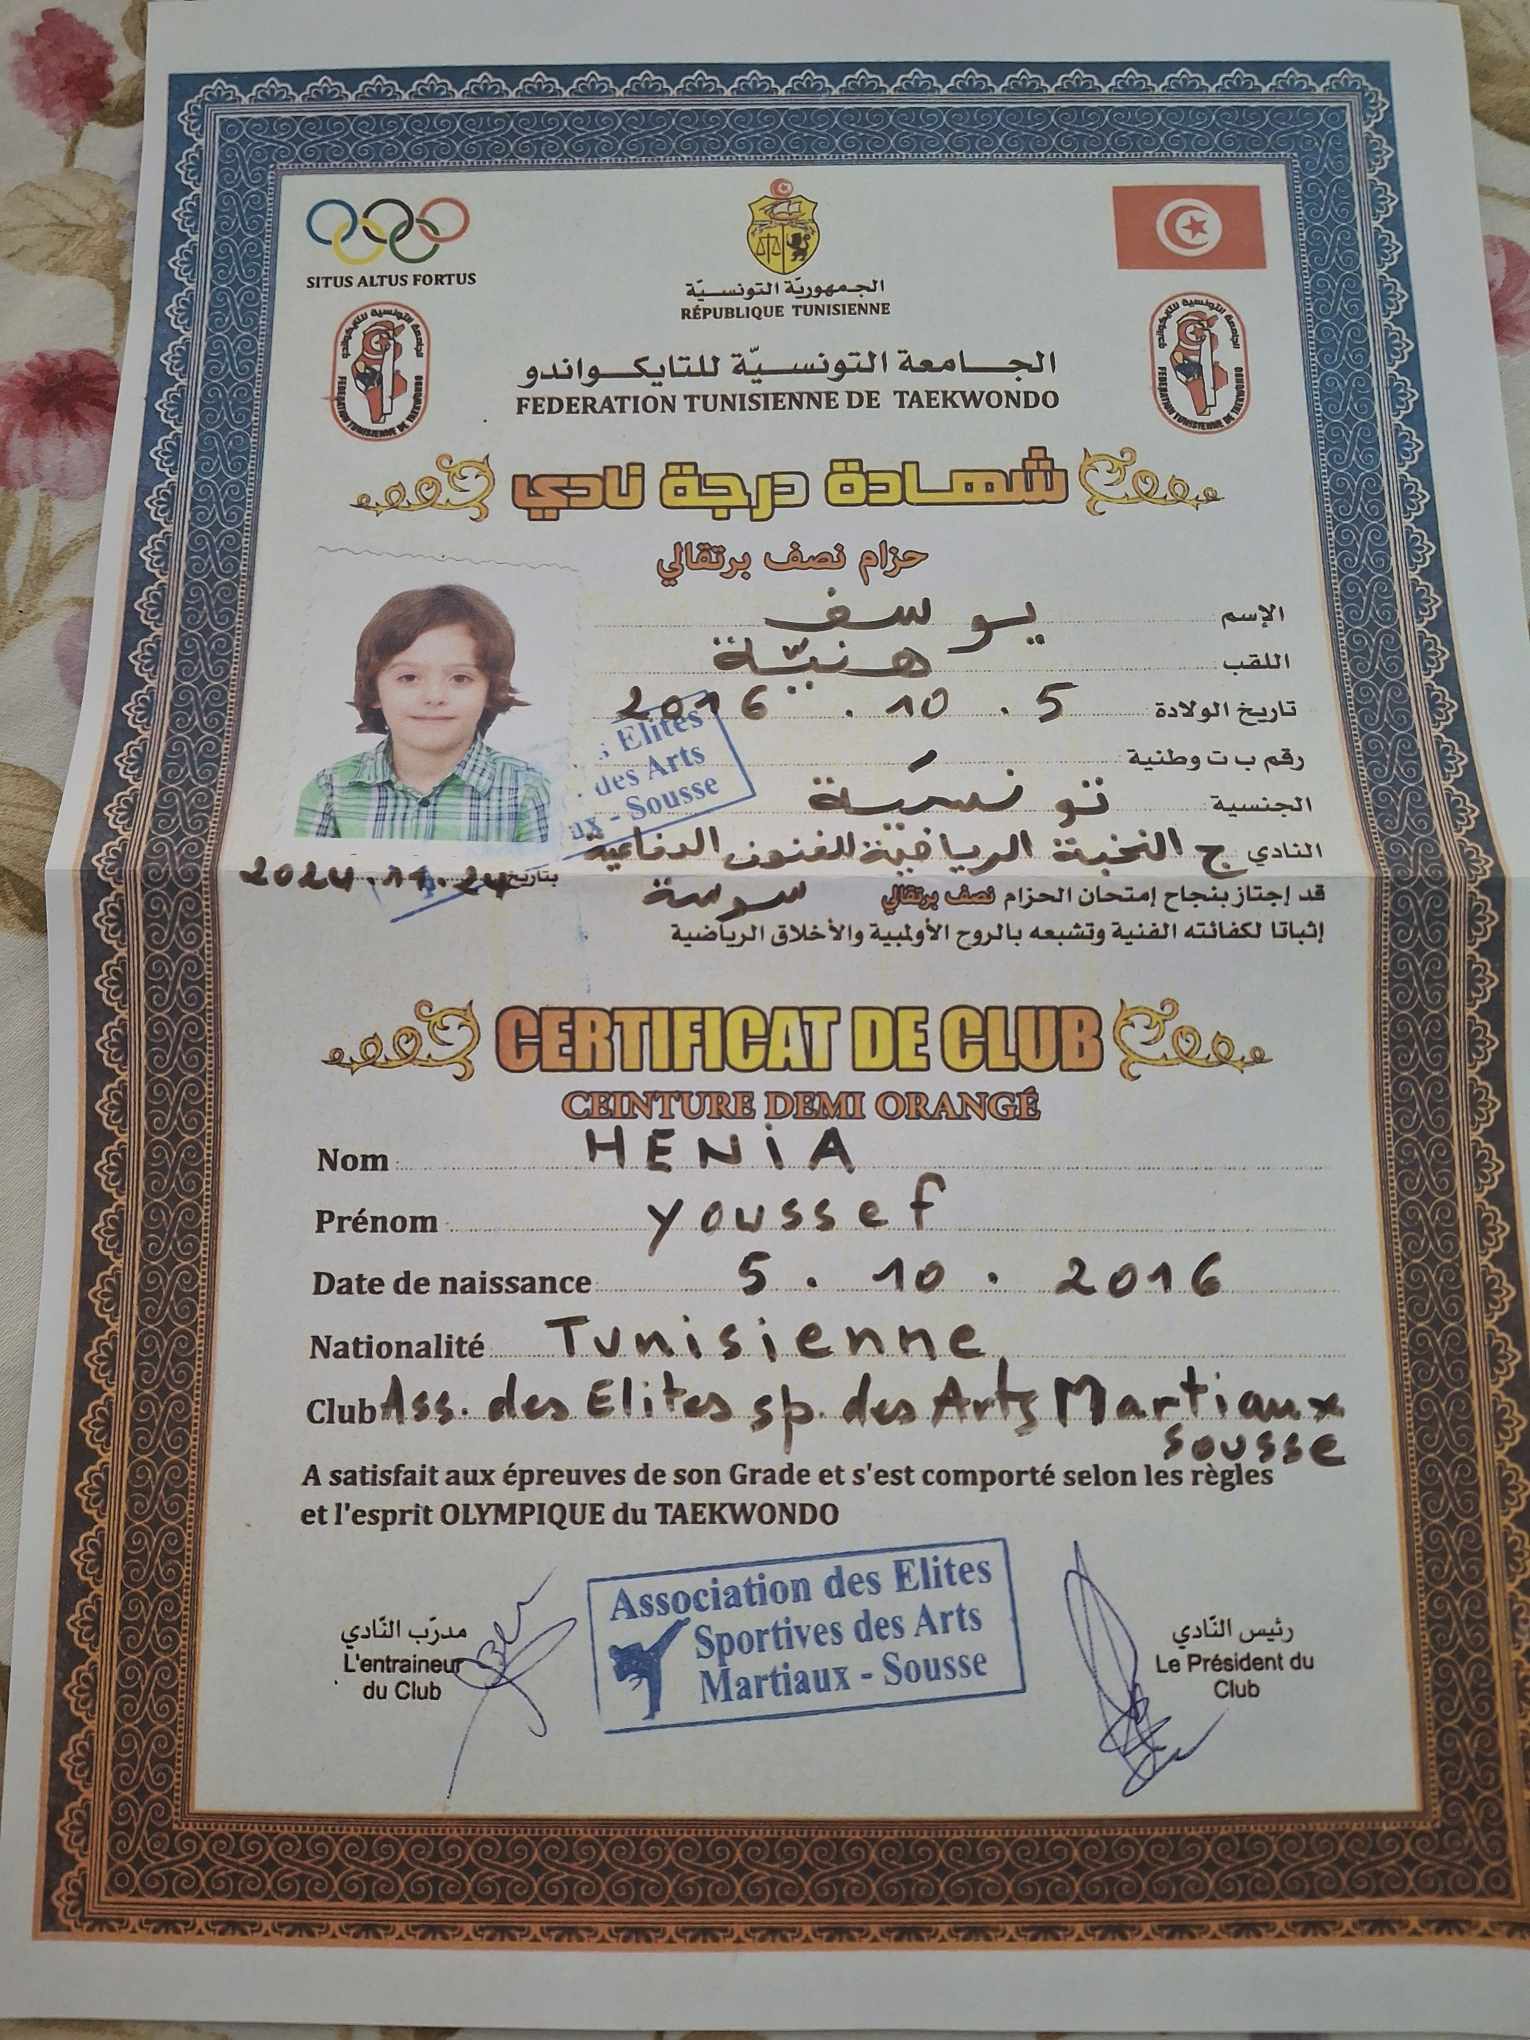 SITUS ALTUS FORTUS
الجمهوريّة التونسيّة
RÉPUBLIQUE TUNISIENNE
الجامعة التونسيّة للتايكواندو
FEDERATION TUNISIENNE DE TAEKWONDO
الجامعة التونسية للتايكواندو
FEDERATION TUNISIENNE DE TAEKWONDO
الجامعة التونسية للتايكواندو
FEDERATION TUNISIENNE DE TAEKWONDO
شهادة درجة نادي
حزام نصف برتقالي
الإسم يوسف
اللقب هنيّة
تاريخ الولادة 5 . 10 . 2016
رقم ب ت وطنية
الجنسية تونسية
النادي ج النخبة الرياضية للفنون الدفاعية
سوسة
بتاريخ 2024.11.24
Elites
des Arts
ux - Sousse
قد إجتاز بنجاح إمتحان الحزام نصف برتقالي
إثباتا لكفائته الفنية وتشبعه بالروح الأولمبية والأخلاق الرياضية
CERTIFICAT DE CLUB
CEINTURE DEMI ORANGÉ
Nom HENiA
Prénom Youssef
Date de naissance 5 . 10 . 2016
Nationalité Tunisienne
Club Ass. des Elites sp. des Arts Martiaux
Sousse
A satisfait aux épreuves de son Grade et s'est comporté selon les règles
et l'esprit OLYMPIQUE du TAEKWONDO
مدرّب النّادي
L'entraineur
du Club
Association des Elites
Sportives des Arts
Martiaux - Sousse
رئيس النّادي
Le Président du
Club